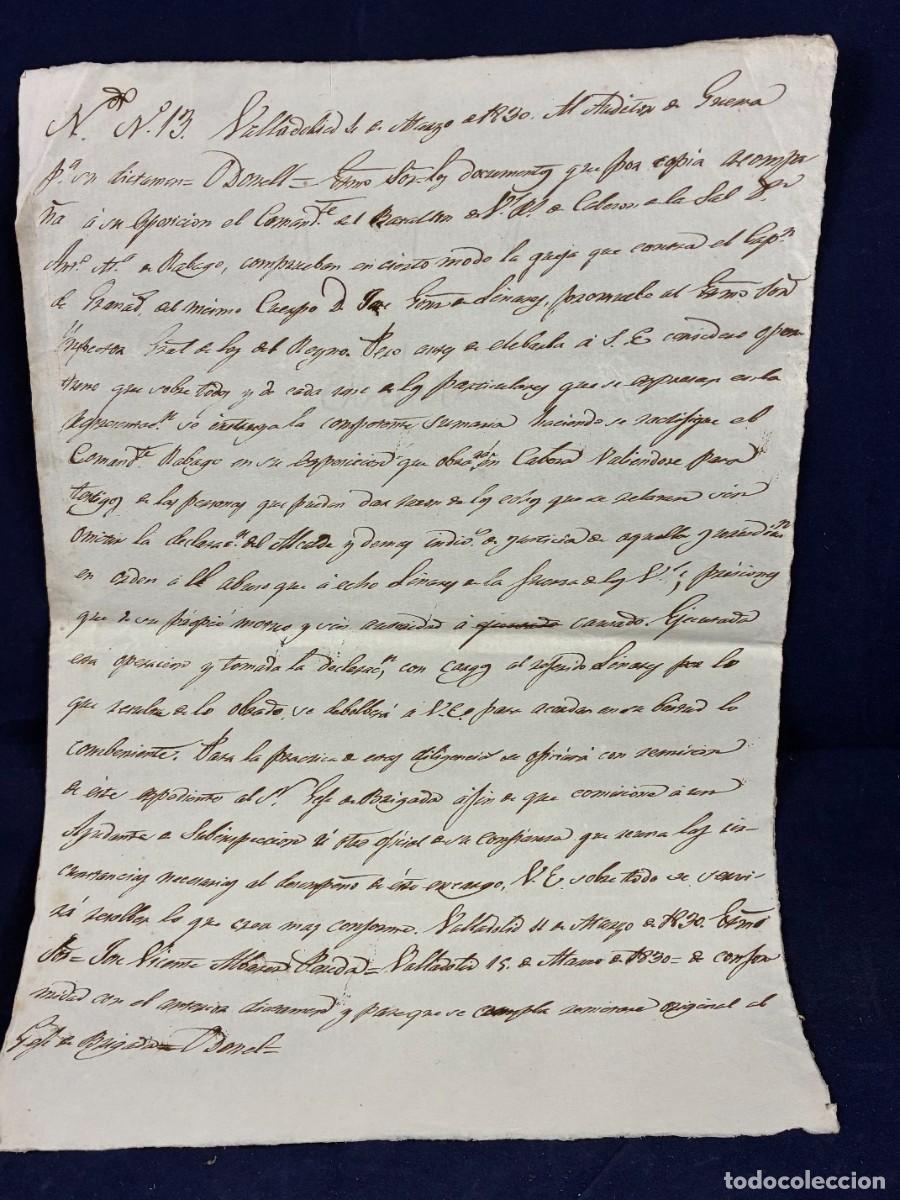 Nº 13. Valladolid de Marzo de 1830. Al Auditor de Guerra
pª su dictamen = ODonell = Exmo Sor = los documentos que por copia acompa
ña á su esposicion el Comandte del Batallon de Vs Rs de Cabezon de la Sal Dn
Anto Mª de Rabago, comprueban en cierto modo la queja que contra el Capn
de Granads del mismo Cuerpo D. Gomz de Linares, promuebe al Exmo Sor
Ynspector Gral de los del Reyno. Pero antes de elebarla á S. E. considero opor
tuno que sobre todos y de cada uno de los particulares que se espresan en la
se instruya la competente sumaria haciendo se ratifique el
Comandte Rabago en su esposicion que obrará en Cabeza Valiendose para
testigos de las personas que puedan dar razon de los echos que se relatan sin
omitir la declaracn del Alcalde y demas indibs de justicia de aquella
en orden á el abuso que á echo Linares de la fuerza de los Vs; prisiones
que de su propio motivo y sin autoridad á causado. Ejecutada
esta operacion y tomada la declaracn, con cargos al referido Linares por lo
que resulta de lo obrado, se debolberá á V.E. para acordar en su bista lo
combeniente. Para la practica de estas diligencias se oficiará con remision
de éste espediente al Sr Gefe de Brigada á fin de que comisione á un
Ayudante de Subinspeccion ú otro oficial de su confianza que reuna las cir-
cunstancias necesarias al desempeño de éste encargo, V.E. sobre todo se servi-
rá resolber lo que crea mas conforme. Valladolid 11 de Marzo de 1830. Exmo
Sor = Jose Vicente Albarez Pereda = Valladolid 15. de Marzo de 1830 = de confor
midad con el anterior dictamen y para que se cumpla remitase original al
Gefe de Brigada = ODonel =
todocoleccion